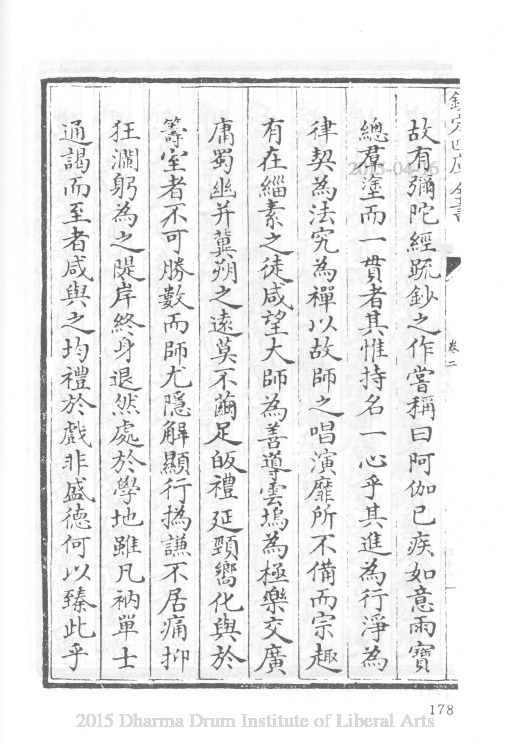 欽定四庫全書
卷二
故有彌陀經䟽鈔之作嘗稱曰阿伽已疾如意雨寶
總羣塗而一貫者其惟持名一心乎其進為行淨為
律契為法究為禪以故師之唱演靡所不備而宗趣
有在緇素之徒咸望大師為善導雲塢為極樂交廣
庸蜀幽并冀朔之遠莫不繭足皈禮延頸嚮化與於
籌室者不可勝數而師尤隱解顯行撝謙不居痛抑
狂瀾躬為之隄岸終身退然處於學地雖凡衲單士
通謁而至者咸與之均禮於戲非盛德何以臻此乎
178
2015-04-16
2015 Dharma Drum Institute of Liberal Arts